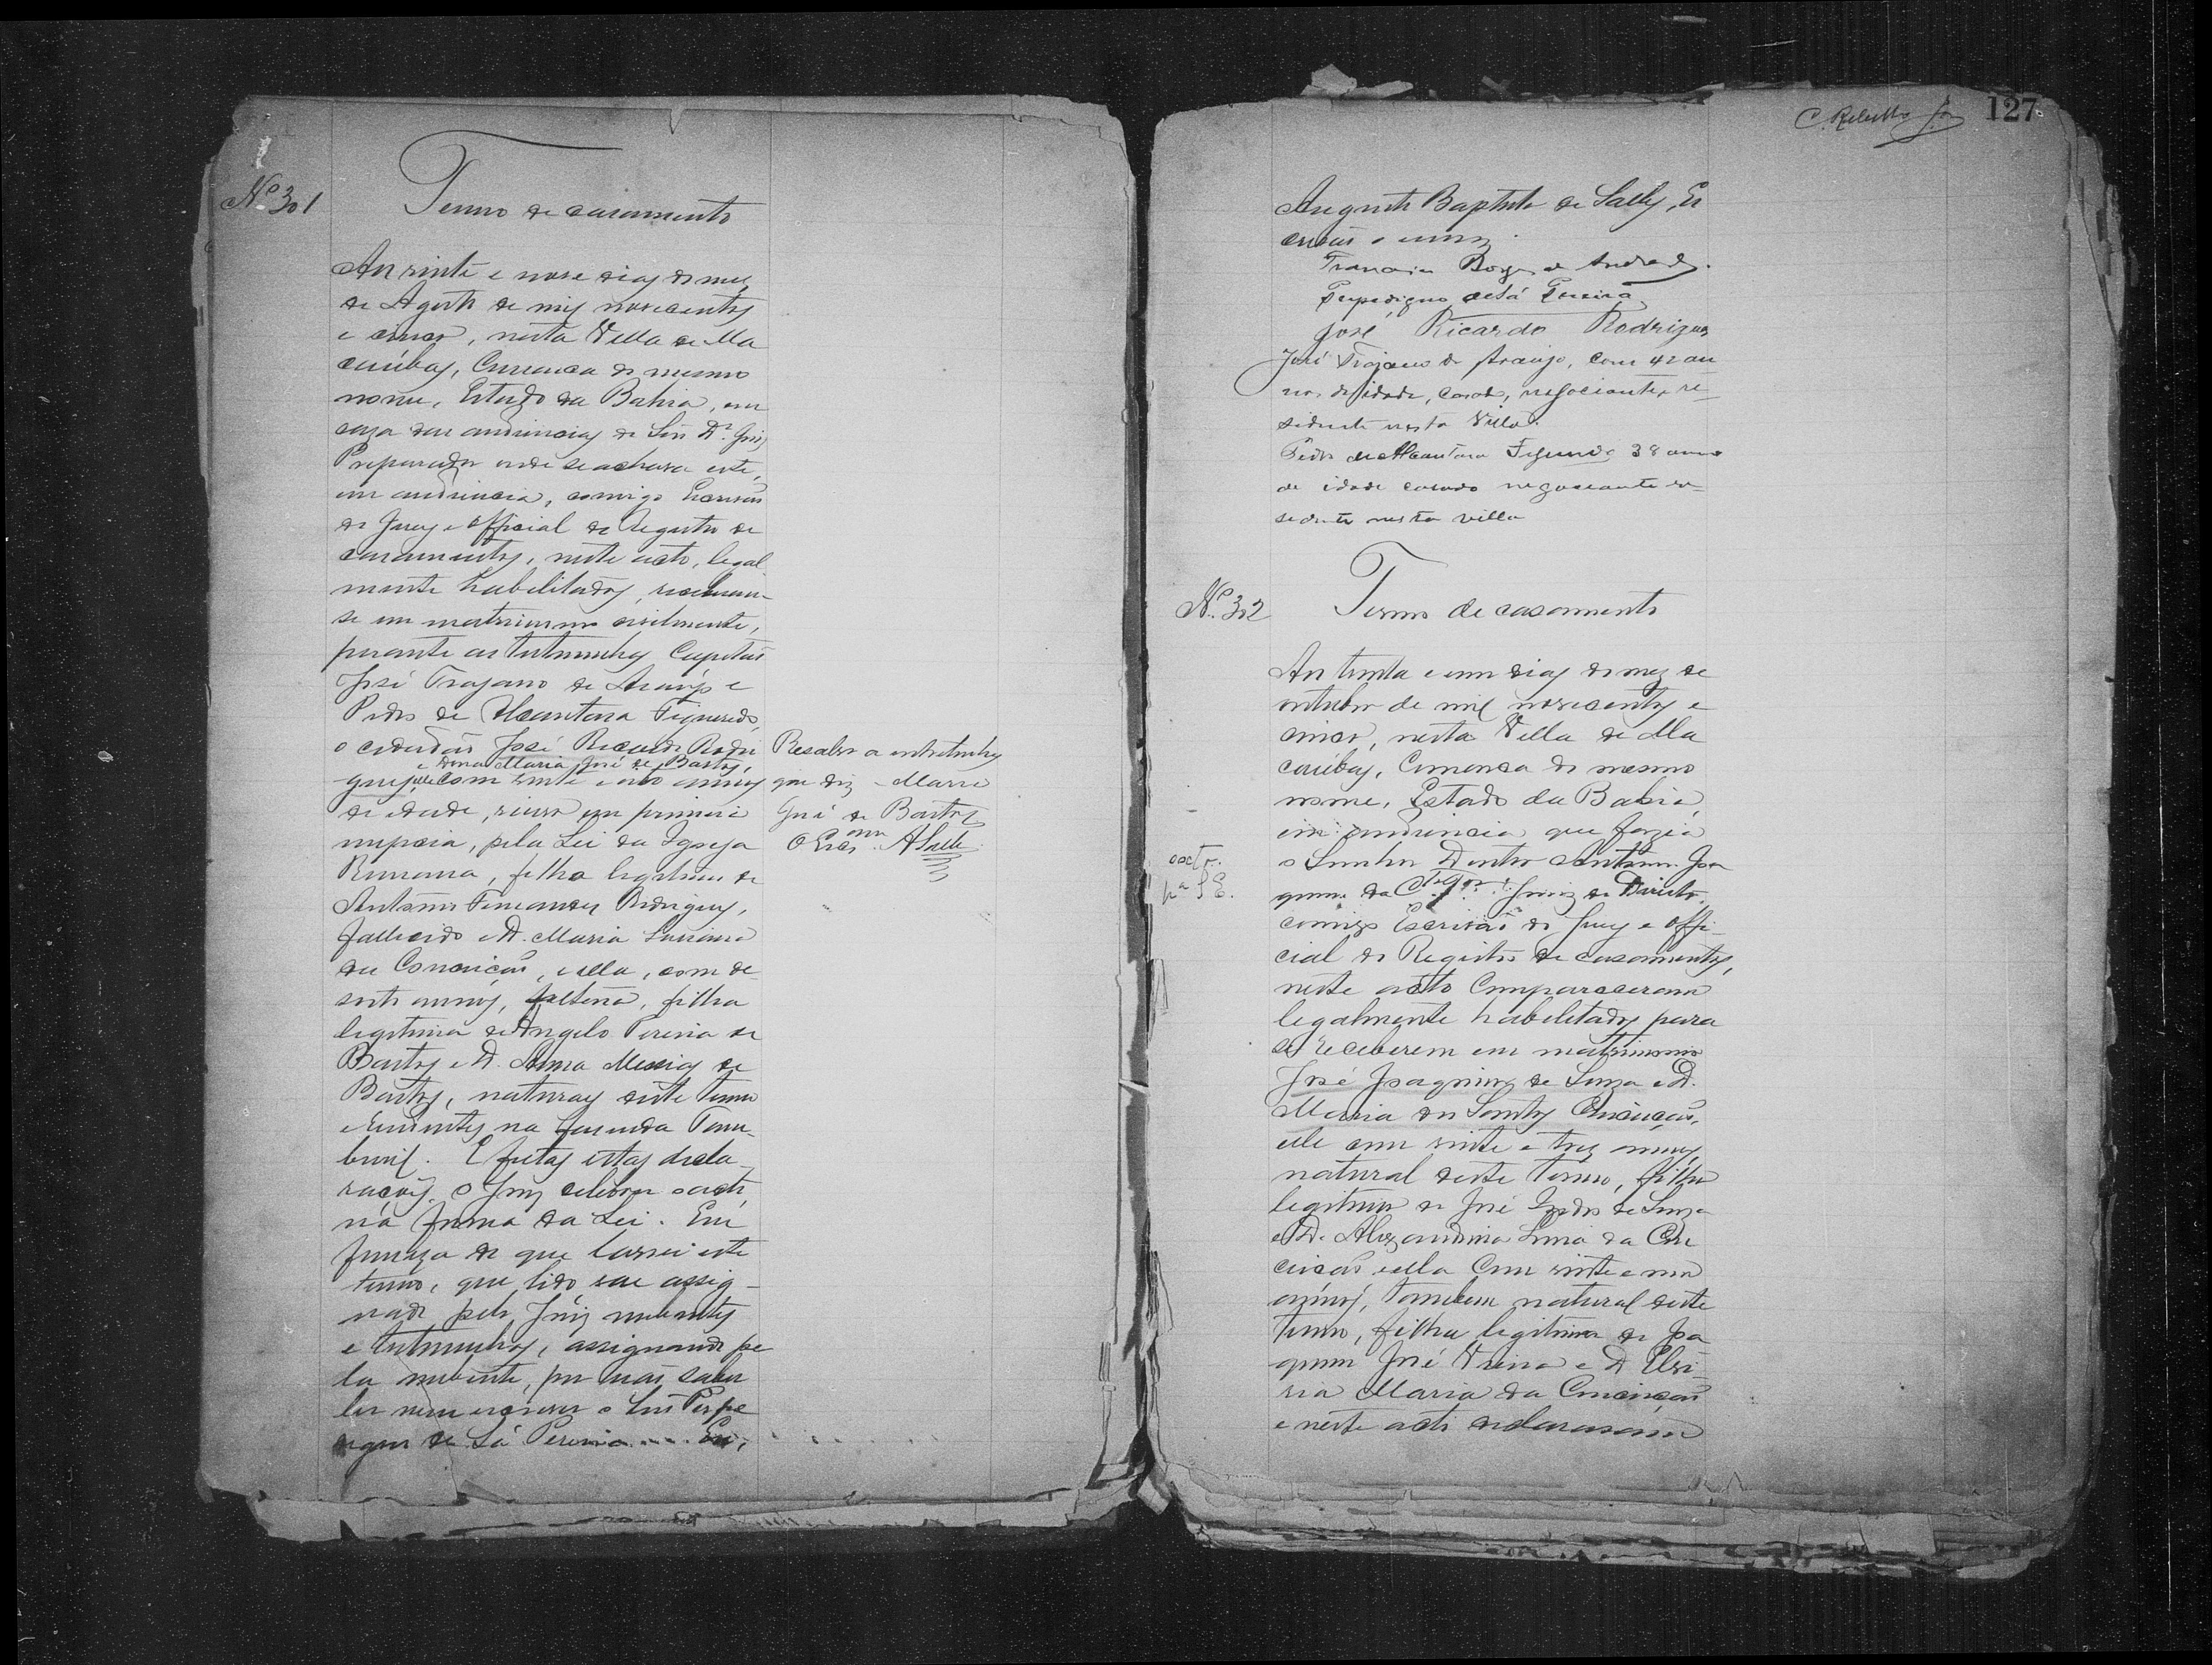 Nº 301
Termo de casamento
Aos vinte e nove dias do mez
de Agosto de mil novecentos
e cinco, nesta Villa de Ma
caúbas, Comarca do mesmo
nome, Estado da Bahia, em
caza das audiencias do Snr Dr. Juiz
Preparador onde se achava este,
em audiencia, comigo Escrivão
do Jury e Official do Registro de
casamentos, neste acto, legal
mente habilitados, receberam-
se em matrimonio civilmente,
perante as testemunhas Capitão
José Trajano de Araujo e
Pedro de Alcantara Figueredo,
o cidadão José Ricardo Rodri
e Dona Maria José de Bastos,
gues, elle com vinte e oito annos
de idade, viuvo em primeira
nupcia, pela Lei da Igreja
Romana, filho legitimo de
Antonio Fernandes Rodrigues,
fallecido e D. Maria
da Conceição, e ella, com de
sete annos, solteira, filha
legitima de Angelo Pereira de
Bastos e D. Anna Messias de
Bastos, naturaes deste termo
e residentes na fazenda Tam-
boril. E feitas estas decla-
rações, o Juiz celebrou o acto,
na forma da Lei. Em
firmeza do que lavrei este
termo, que lido vae assig-
nado pelo Juiz nubentes
e testemunhas, assignando pe
la nubente, por não saber
ler nem escrever o Snr Perpe
digno de Sá Pereira.... Eu,
Resalvo a entrelinha
que diz - Maria
José de Bastos
O Escrivam ASalle
C. Rebello Jor 127
Augusto Baptista de Salles, Es
crivão o escrevi.
Francisco Borges de Andrade.
Perpedigno de Sá Pereira
José Ricardo Rodrigues
José Trajano de Araujo, com 42 an
nos de idade, casado, negociante, re-
sidente nesta Villa.
Pedro de Alcantara Figueredo 38 annos
de idade casado negociante re-
sidente nesta villa
Nº 302
Termo de casamento
Aos trinta e um dias do mez de
outubro de mil novecentos e
cinco, nesta Villa de Ma
caúbas, Comarca do mesmo
nome, Estado da Bahia,
em audiencia que fazia
o Senhor Doutor Antonio Joa
quim da Juiz de Direito,
comigo Escrivão do Jury e Offi-
cial do Registro de casamentos,
neste acto Compareceram
legalmente habilitados para
se receberem em matrimonio
José Joaquim de Souza e D.
Maria dos Santos Conceição,
elle com vinte e trez annos,
natural deste termo, filho
legitimo de José de Souza
e D. Alexandrina Lima da Con
ceição e ella com vinte e um
annos, tambem natural deste
termo, filha legitima de Joa
quim José Vieira e D
ria Maria da Conceição
e neste acto declararam